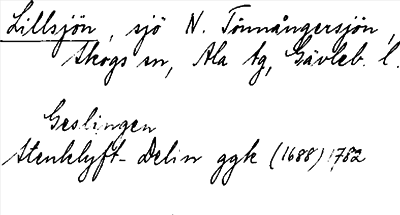 Lillsjön, sjö N. Tönnångersjön,
Skogs sn, Ala tg, Gävleb. l.
Geslingen
Stenklyft- Delin ggk (1688) 1782